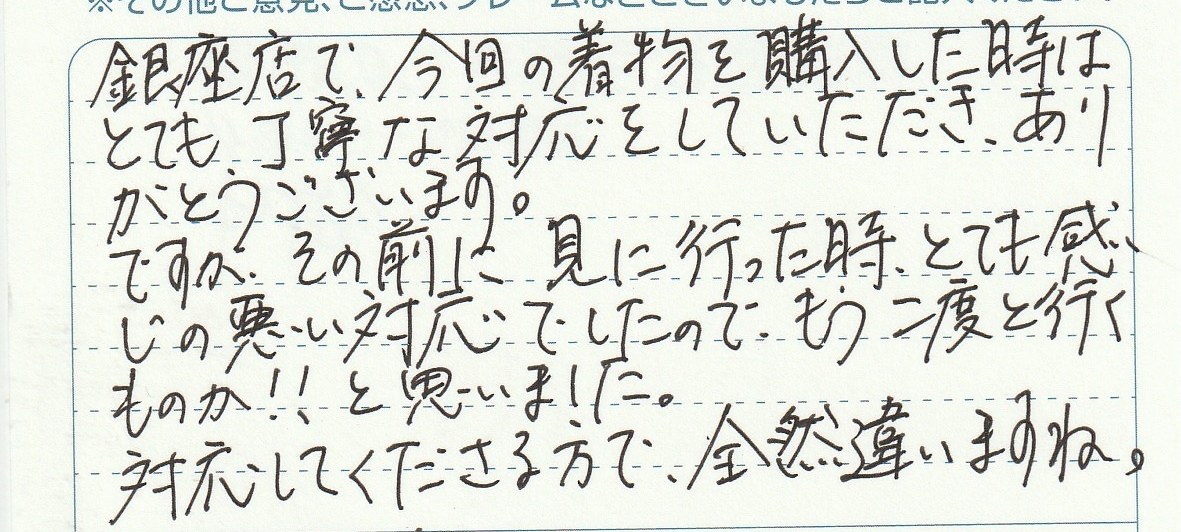 ※その他ご意見、ご感想、クレームなどございましたらご記入ください。
銀座店で、今回の着物を購入した時は
とても丁寧な対応をしていただき、あり
がとうございます。
ですが、その前に見に行った時、とても感
じの悪い対応でしたので、もう二度と行く
ものか!!と思いました。
対応してくださる方で、全然違いますね。